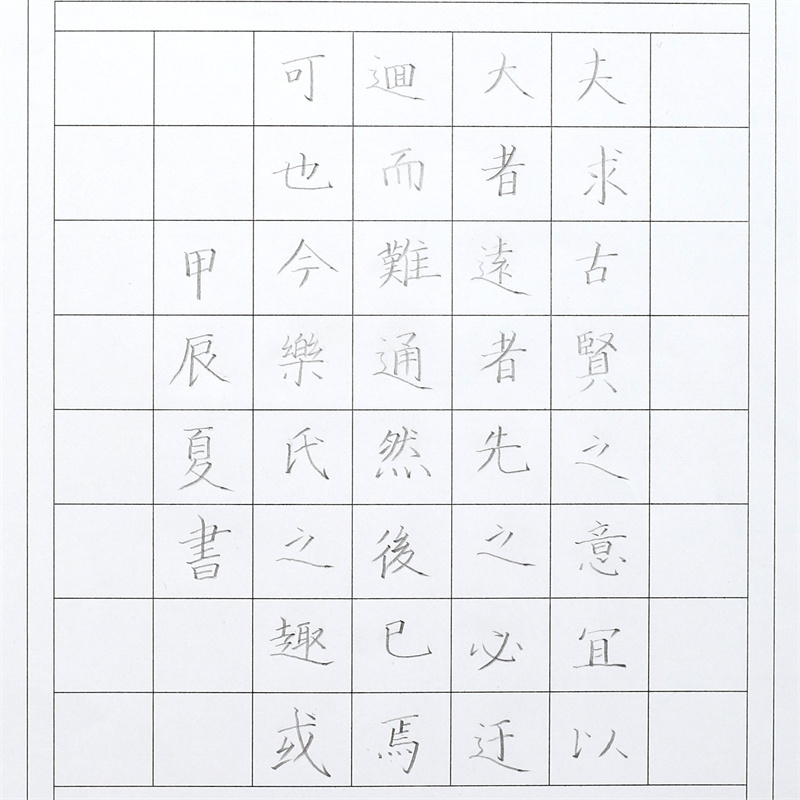 夫求古賢之意宜以
大者遠者先之必迂
迴而難通然後已焉
可也今樂氏之趣或
甲辰夏書